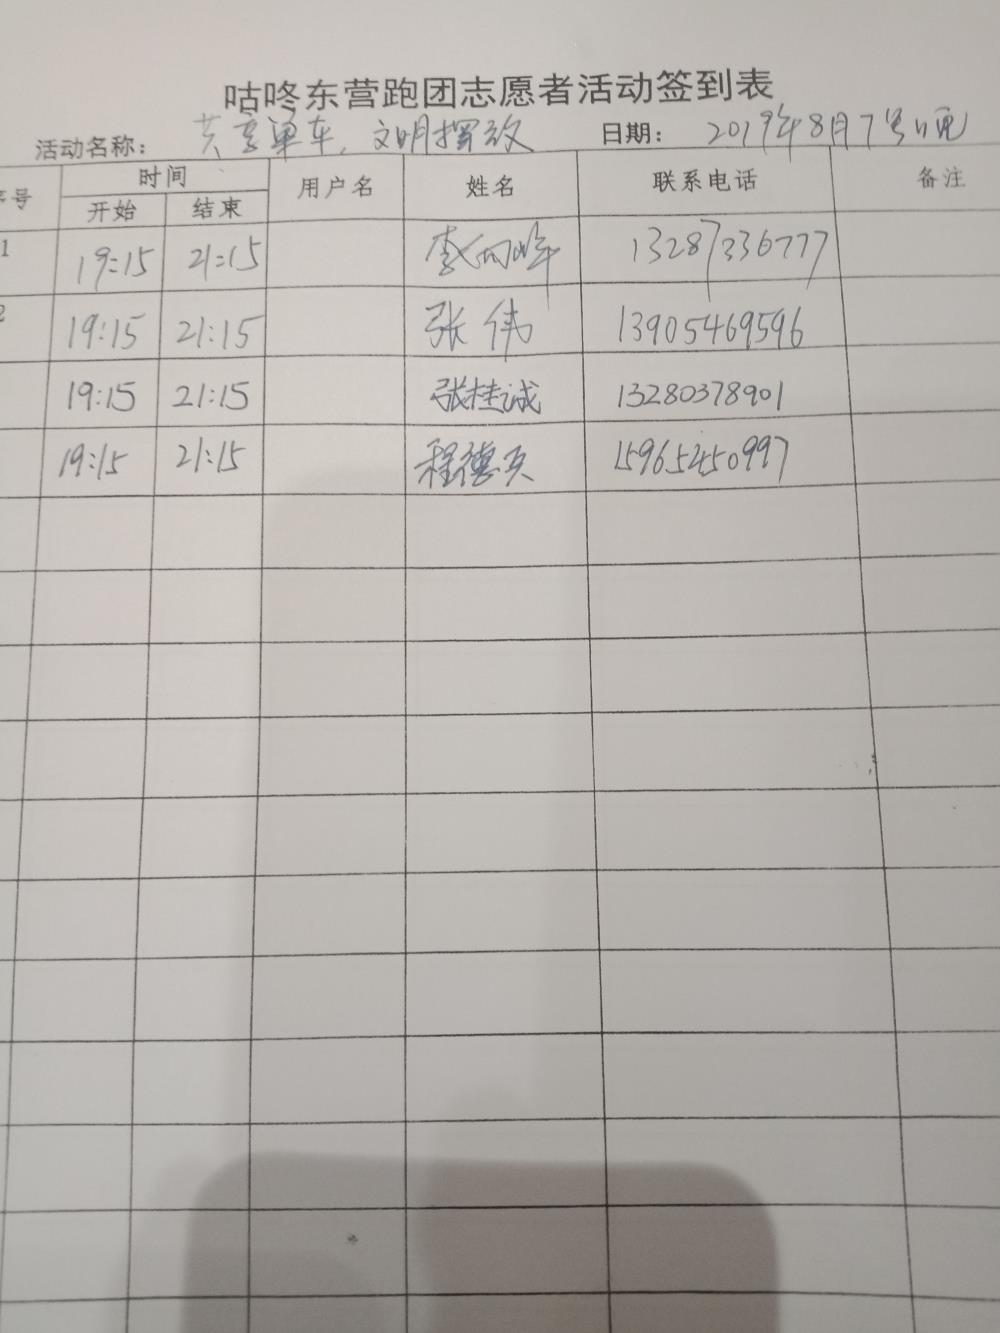 咕咚东营跑团志愿者活动签到表
活动名称: 共享单车、文明摆放 日期: 2019年8月7号
序号 时间 用户名 姓名 联系电话 备注
开始 结束
1 19:15 21:15 李向峰 13287336777
2 19:15 21:15 张伟 13905469596
19:15 21:15 张桂诚 13280378901
19:15 21:15 程德 15965450997